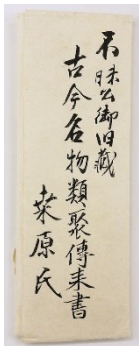 不昧公御旧蔵
古今名物類聚傳来書
桑原氏